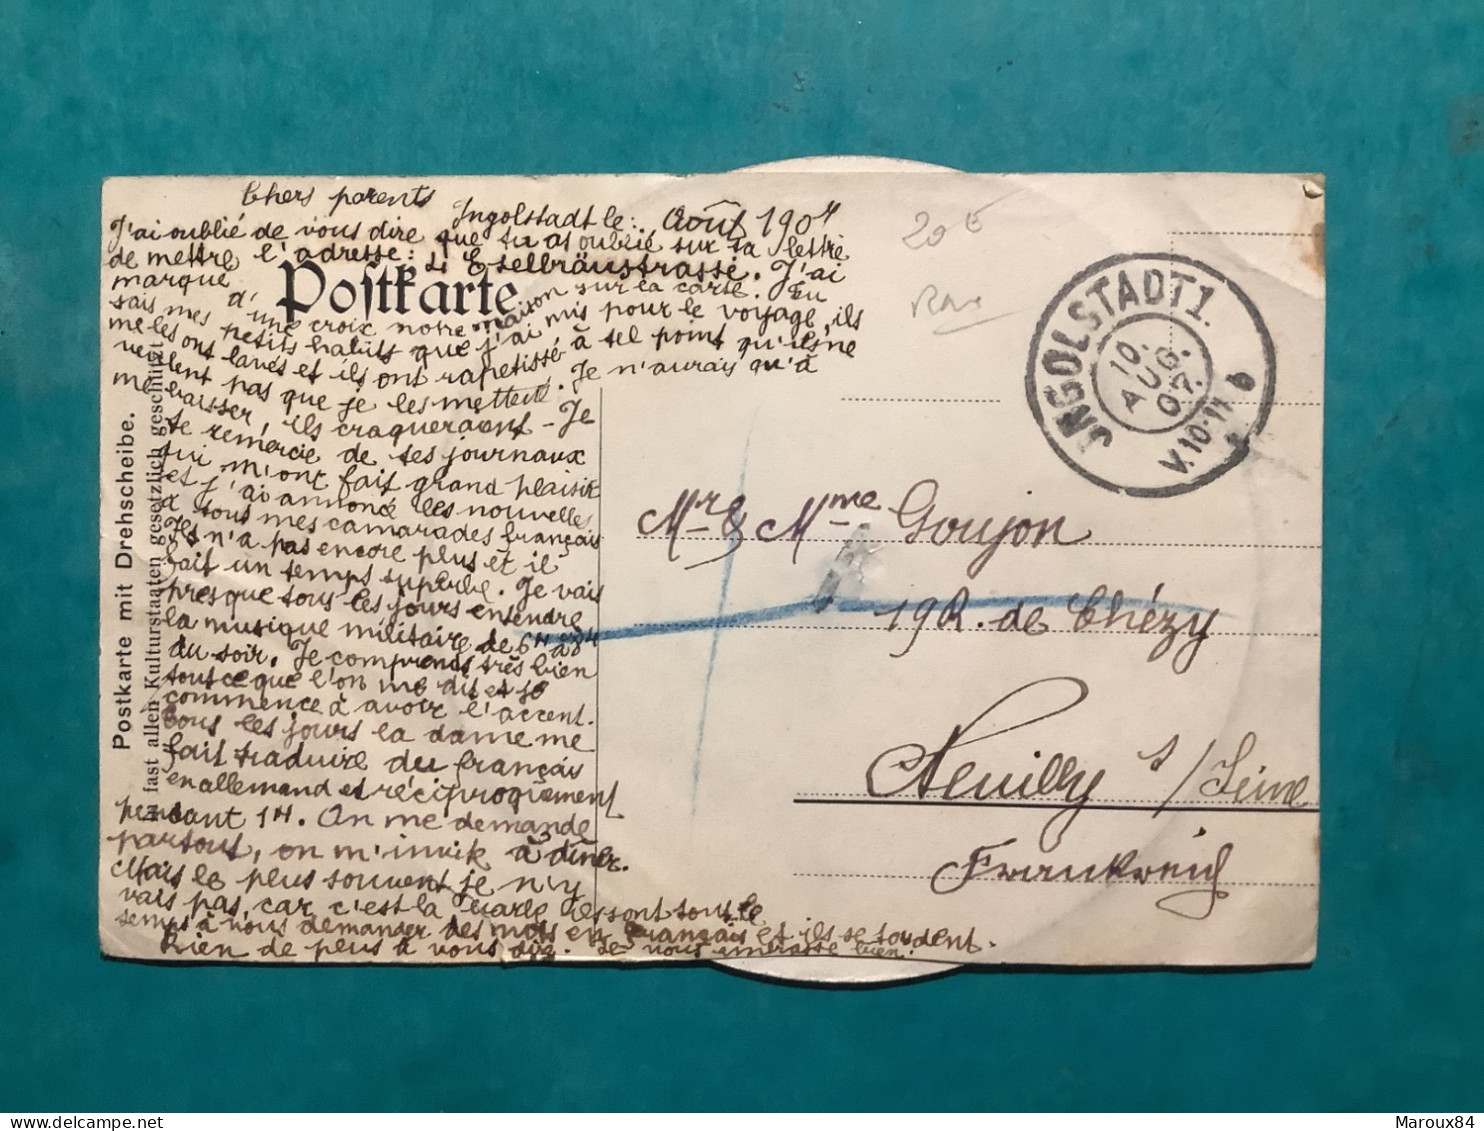 Chers parents
Ingolstadt le .. Août 1907
J'ai oublié de vous dire que tu as oublié sur ta lettre
de mettre l'adresse: Eselbräustrasse. J'ai
marqué d'une croix notre maison sur la carte. Tu
sais mes petits habits que j'ai mis pour le voyage, ils
me les ont lavés et ils ont rapetissé à tel point qu'ils ne
veulent pas que je les mettent. Je n'aurais qu'à
me baisser, ils craqueraont - Je
te remercie de tes journaux
qui m'ont fait grand plaisir
et j'ai annoncé les nouvelles
à tous mes camarades français
n'a pas encore plus et il
fait un temps superbe. Je vais
presque tous les jours entendre
la musique militaire de 6H à 8H
du soir. Je comprends très bien
tout ce que l'on me dit et je
commence à avoir l'accent.
Tous les jours la dame me
fait traduire du français
en allemand et réciproquement
pendant 1H. On me demande
partout, on m'invite à dîner.
Mais le plus souvent je n'y
vais pas, car c'est la barbe ils sont tout le
temps à vous demander des mots en français et ils se toudent.
Rien de plus à vous dire. Je vous embrasse bien.
Postkarte
Postkarte mit Drehscheibe.
In fast allen Kulturstaaten gesetzlich geschützt
20€
Rare
INGOLSTADT 1.
10.
AUG.
07.
V.10-11
b
Mr & Mme Goujon
19 R. de Chézy
Neuilly s/Seine
Frankreich
Maroux84